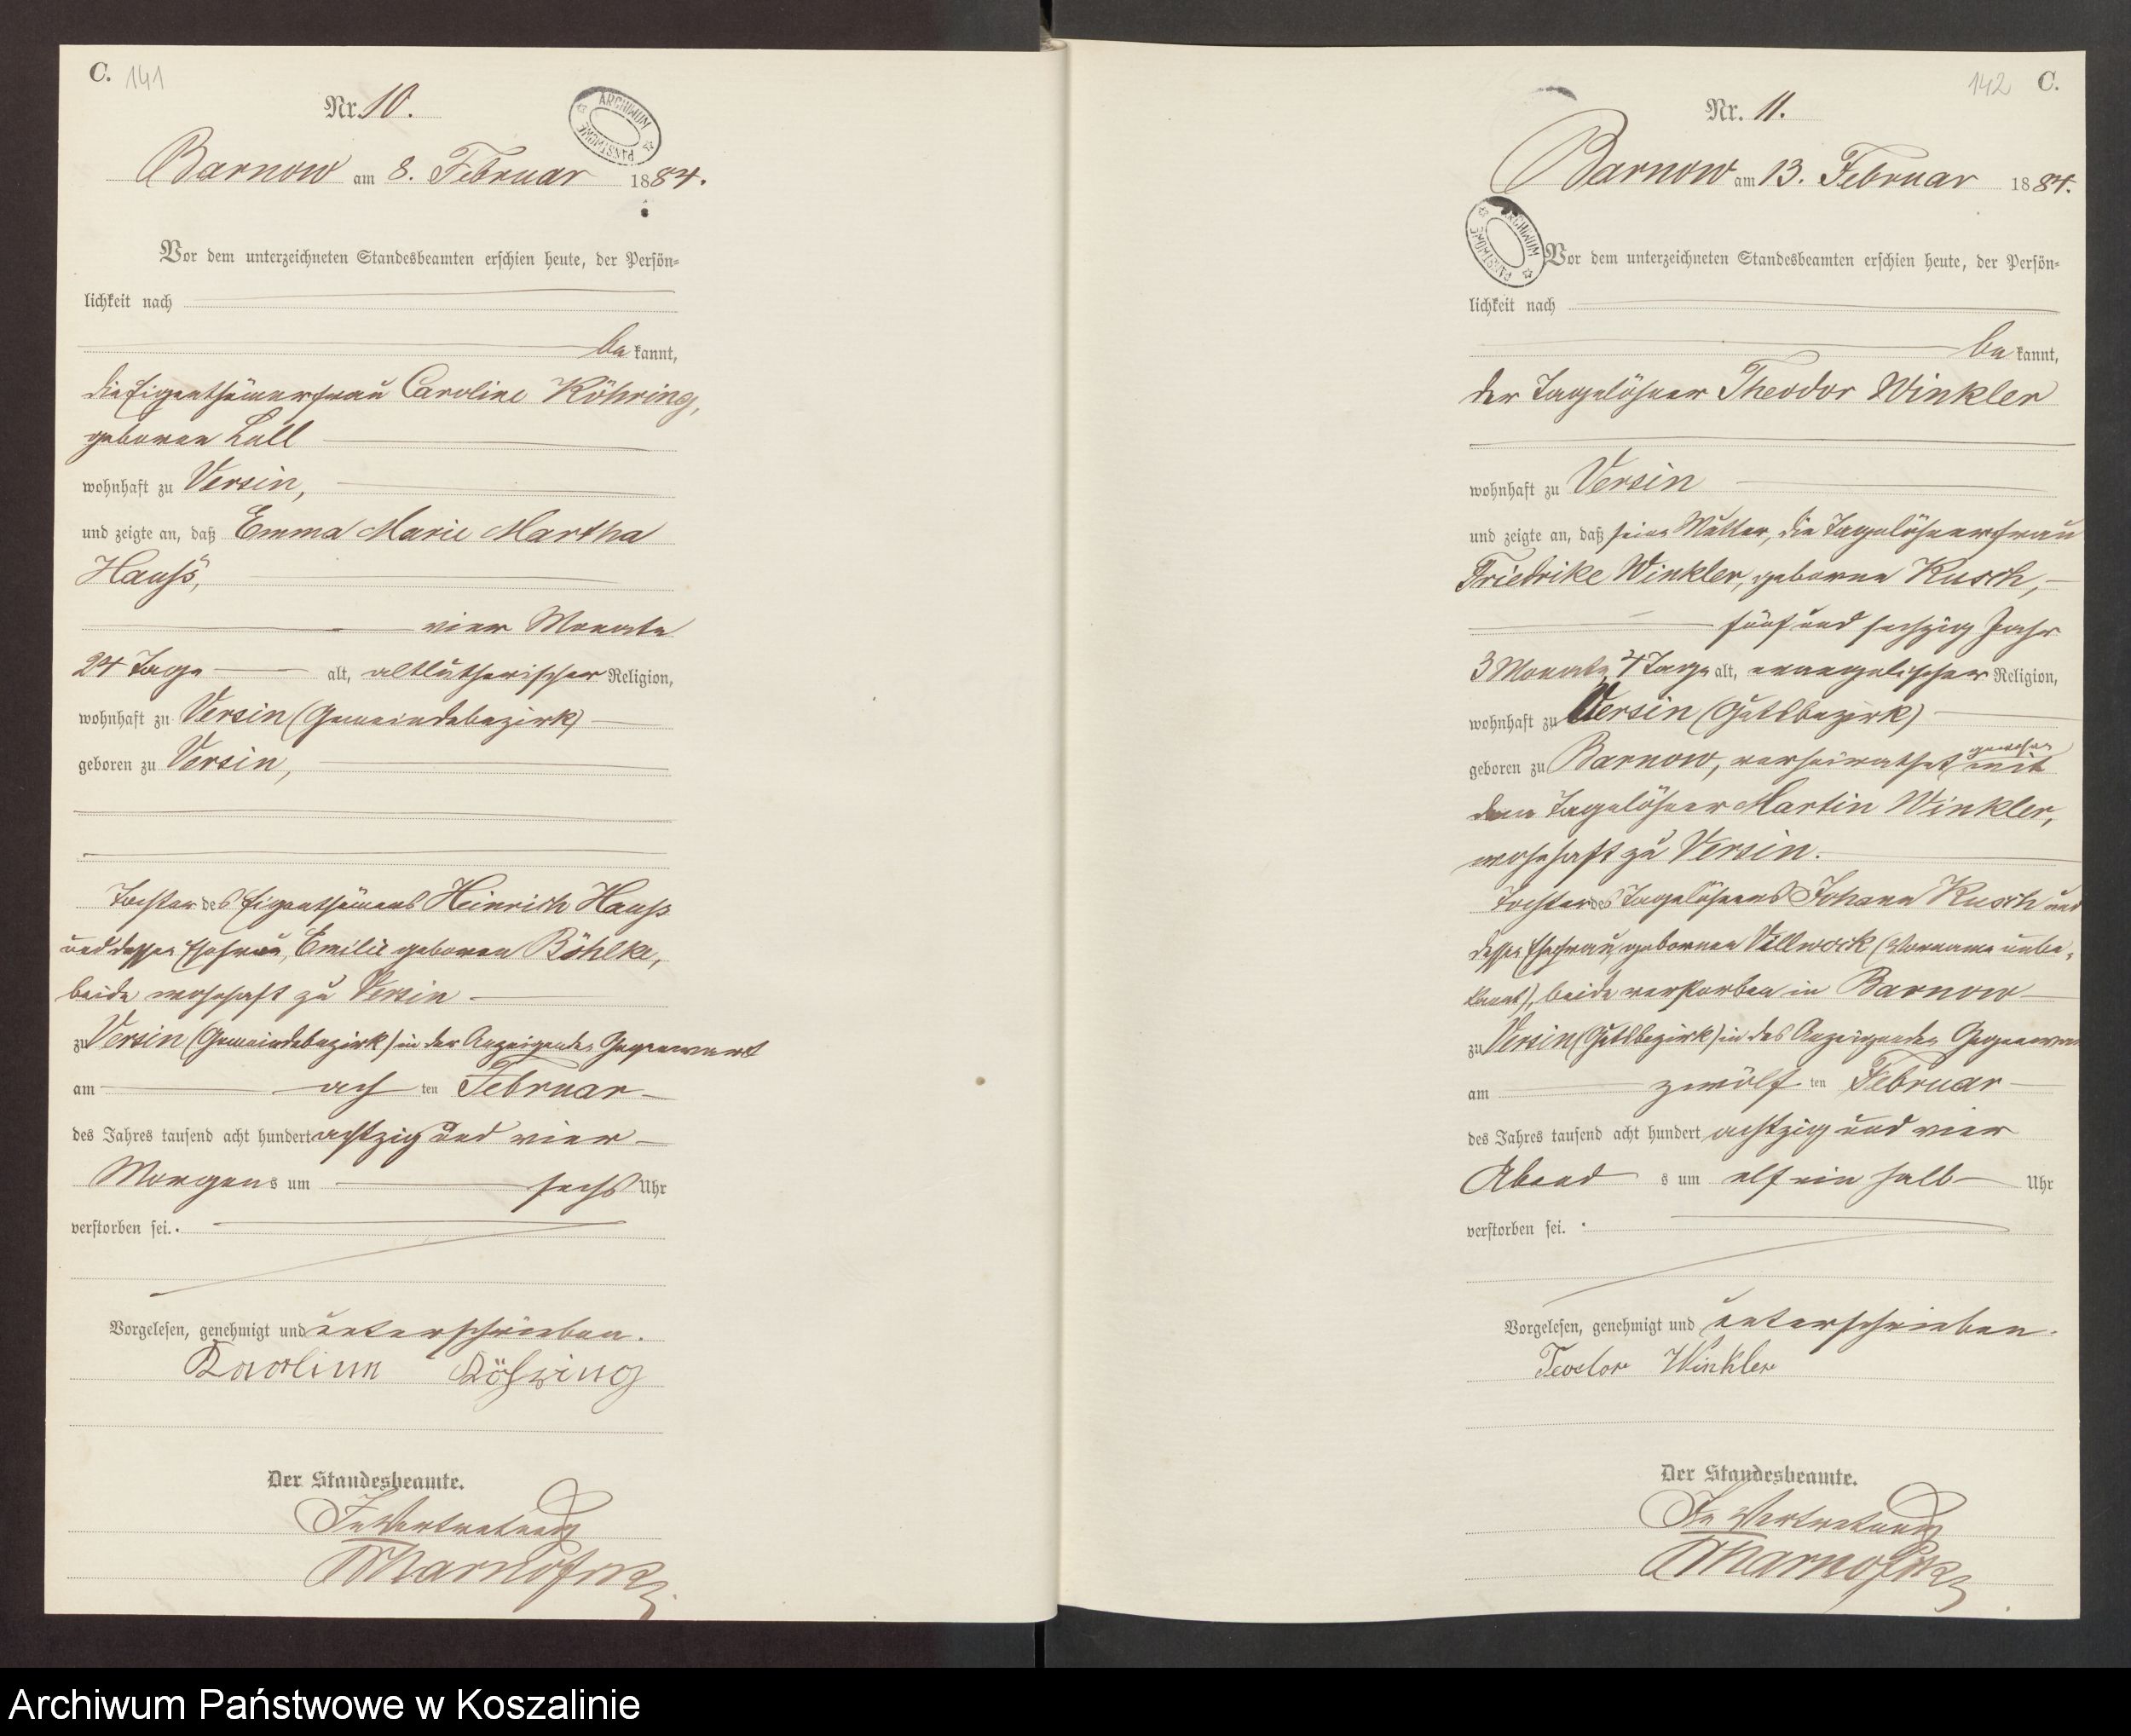 C. 141
Nr. 10.
ARCHIWUM PAŃSTWOWE
Barnow am 8. Februar 1884.
Vor dem unterzeichneten Standesbeamten erschien heute, der Persön-
lichkeit nach
be kannt,
die Eigenthümerfrau Caroline Köhring,
geborene Lüll
wohnhaft zu Versin,
und zeigte an, daß Emma Marie Martha
Hauß,
vier Monate
24 Tage alt, altlutherischer Religion,
wohnhaft zu Versin (Gemeindebezirk)
geboren zu Versin,
Tochter des Eigenthümers Heinrich Hauß
und dessen Ehefrau, Emilie geborene Böhlke,
beide wohnhaft zu Versin
zu Versin (Gemeindebezirk) in der Anzeigenden Gegenwart
am ach ten Februar
des Jahres tausend acht hundert achtzig und vier
Morgens um sechs Uhr
verstorben sei.
Vorgelesen, genehmigt und unterschrieben.
Karoline Köhring
Der Standesbeamte.
In Vertretung
142 C.
Nr. 11.
Barnow am 13. Februar 1884.
ARCHIWUM PAŃSTWOWE
Vor dem unterzeichneten Standesbeamten erschien heute, der Persön-
lichkeit nach
be kannt,
der Tagelöhner Theodor Winkler
wohnhaft zu Versin
und zeigte an, daß seine Mutter, die Tagelöhnerfrau
Friedrike Winkler, geborene Kusch,
fünf und sechzig Jahr
3 Monate, 4 Tage alt, evangelischer Religion,
wohnhaft zu Versin (Gutsbezirk)
geboren zu Barnow, verheirathet gewesen mit
dem Tagelöhner Martin Winkler,
wohnhaft zu Versin.
Tochter des Tagelöhners Johann Kusch und
dessen Ehefrau, geborenen Villwock (Vorname unbe-
kannt), beide verstorben in Barnow
zu Versin (Gutsbezirk) in des Anzeigenden Gegenwart
am zwölf ten Februar
des Jahres tausend acht hundert achtzig und vier
Abend s um elf ein halb Uhr
verstorben sei.
Vorgelesen, genehmigt und unterschrieben.
Teodor Winkler
Der Standesbeamte.
In Vertretung
Archiwum Państwowe w Koszalinie